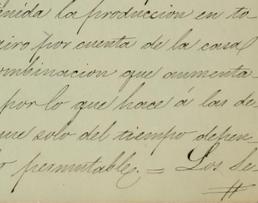 nida la produccion en to
giro por cuenta de la casa
ombinacion que aumenta
por lo que hace á las de
ue solo del tiempo depen
o permutable. = Los Se